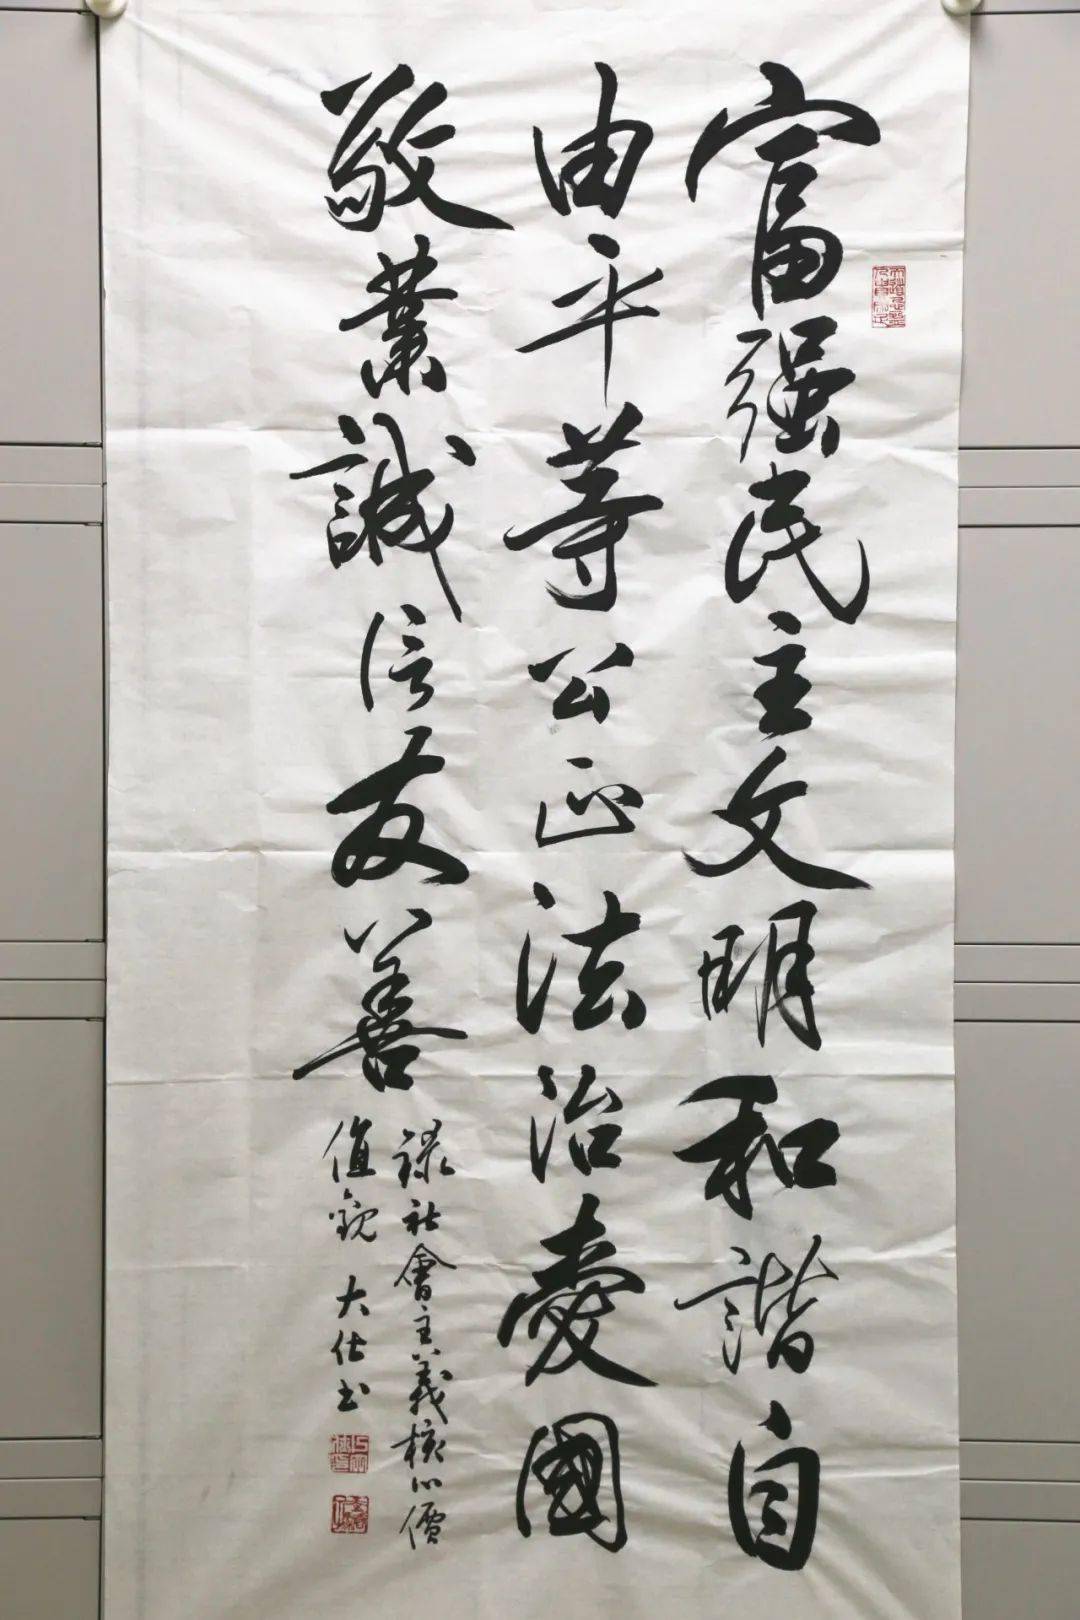 富强民主文明和谐自
由平等公正法治愛國
敬業誠信友善
録社會主義核心價
值觀 大仕书